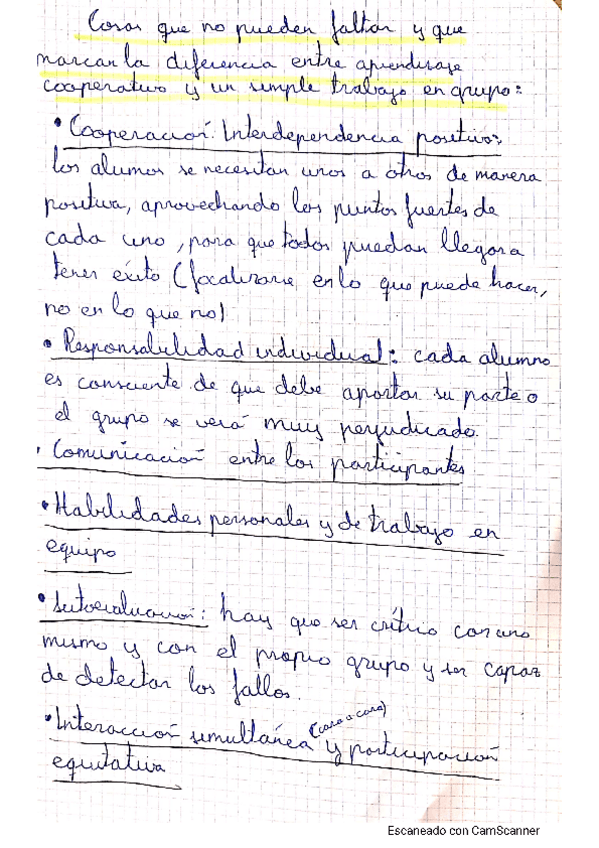 Cosas que no pueden faltar y que
marcan la diferencia entre aprendizaje
cooperativo y un simple trabajo en grupo:
• Cooperación. Interdependencia positiva:
los alumos se necesitan unos a otros de manera
positiva, aprovechando los puntos fuertes de
cada uno, para que todos puedan llegar a
tener éxito (focalizarse en lo que puede hacer,
no en lo que no)
• Responsabilidad individual: cada alumno
es consciente de que debe aportar su parte o
el grupo se verá muy perjudicado.
• Comunicación entre los participantes
• Habilidades personales y de trabajo en
equipo
• Autoevaluación: hay que ser crítico con uno
mismo y con el propio grupo y ser capaz
de detectar los fallos.
• Interacción simultánea (cara a cara) y participación
equitativa
Escaneado con CamScanner